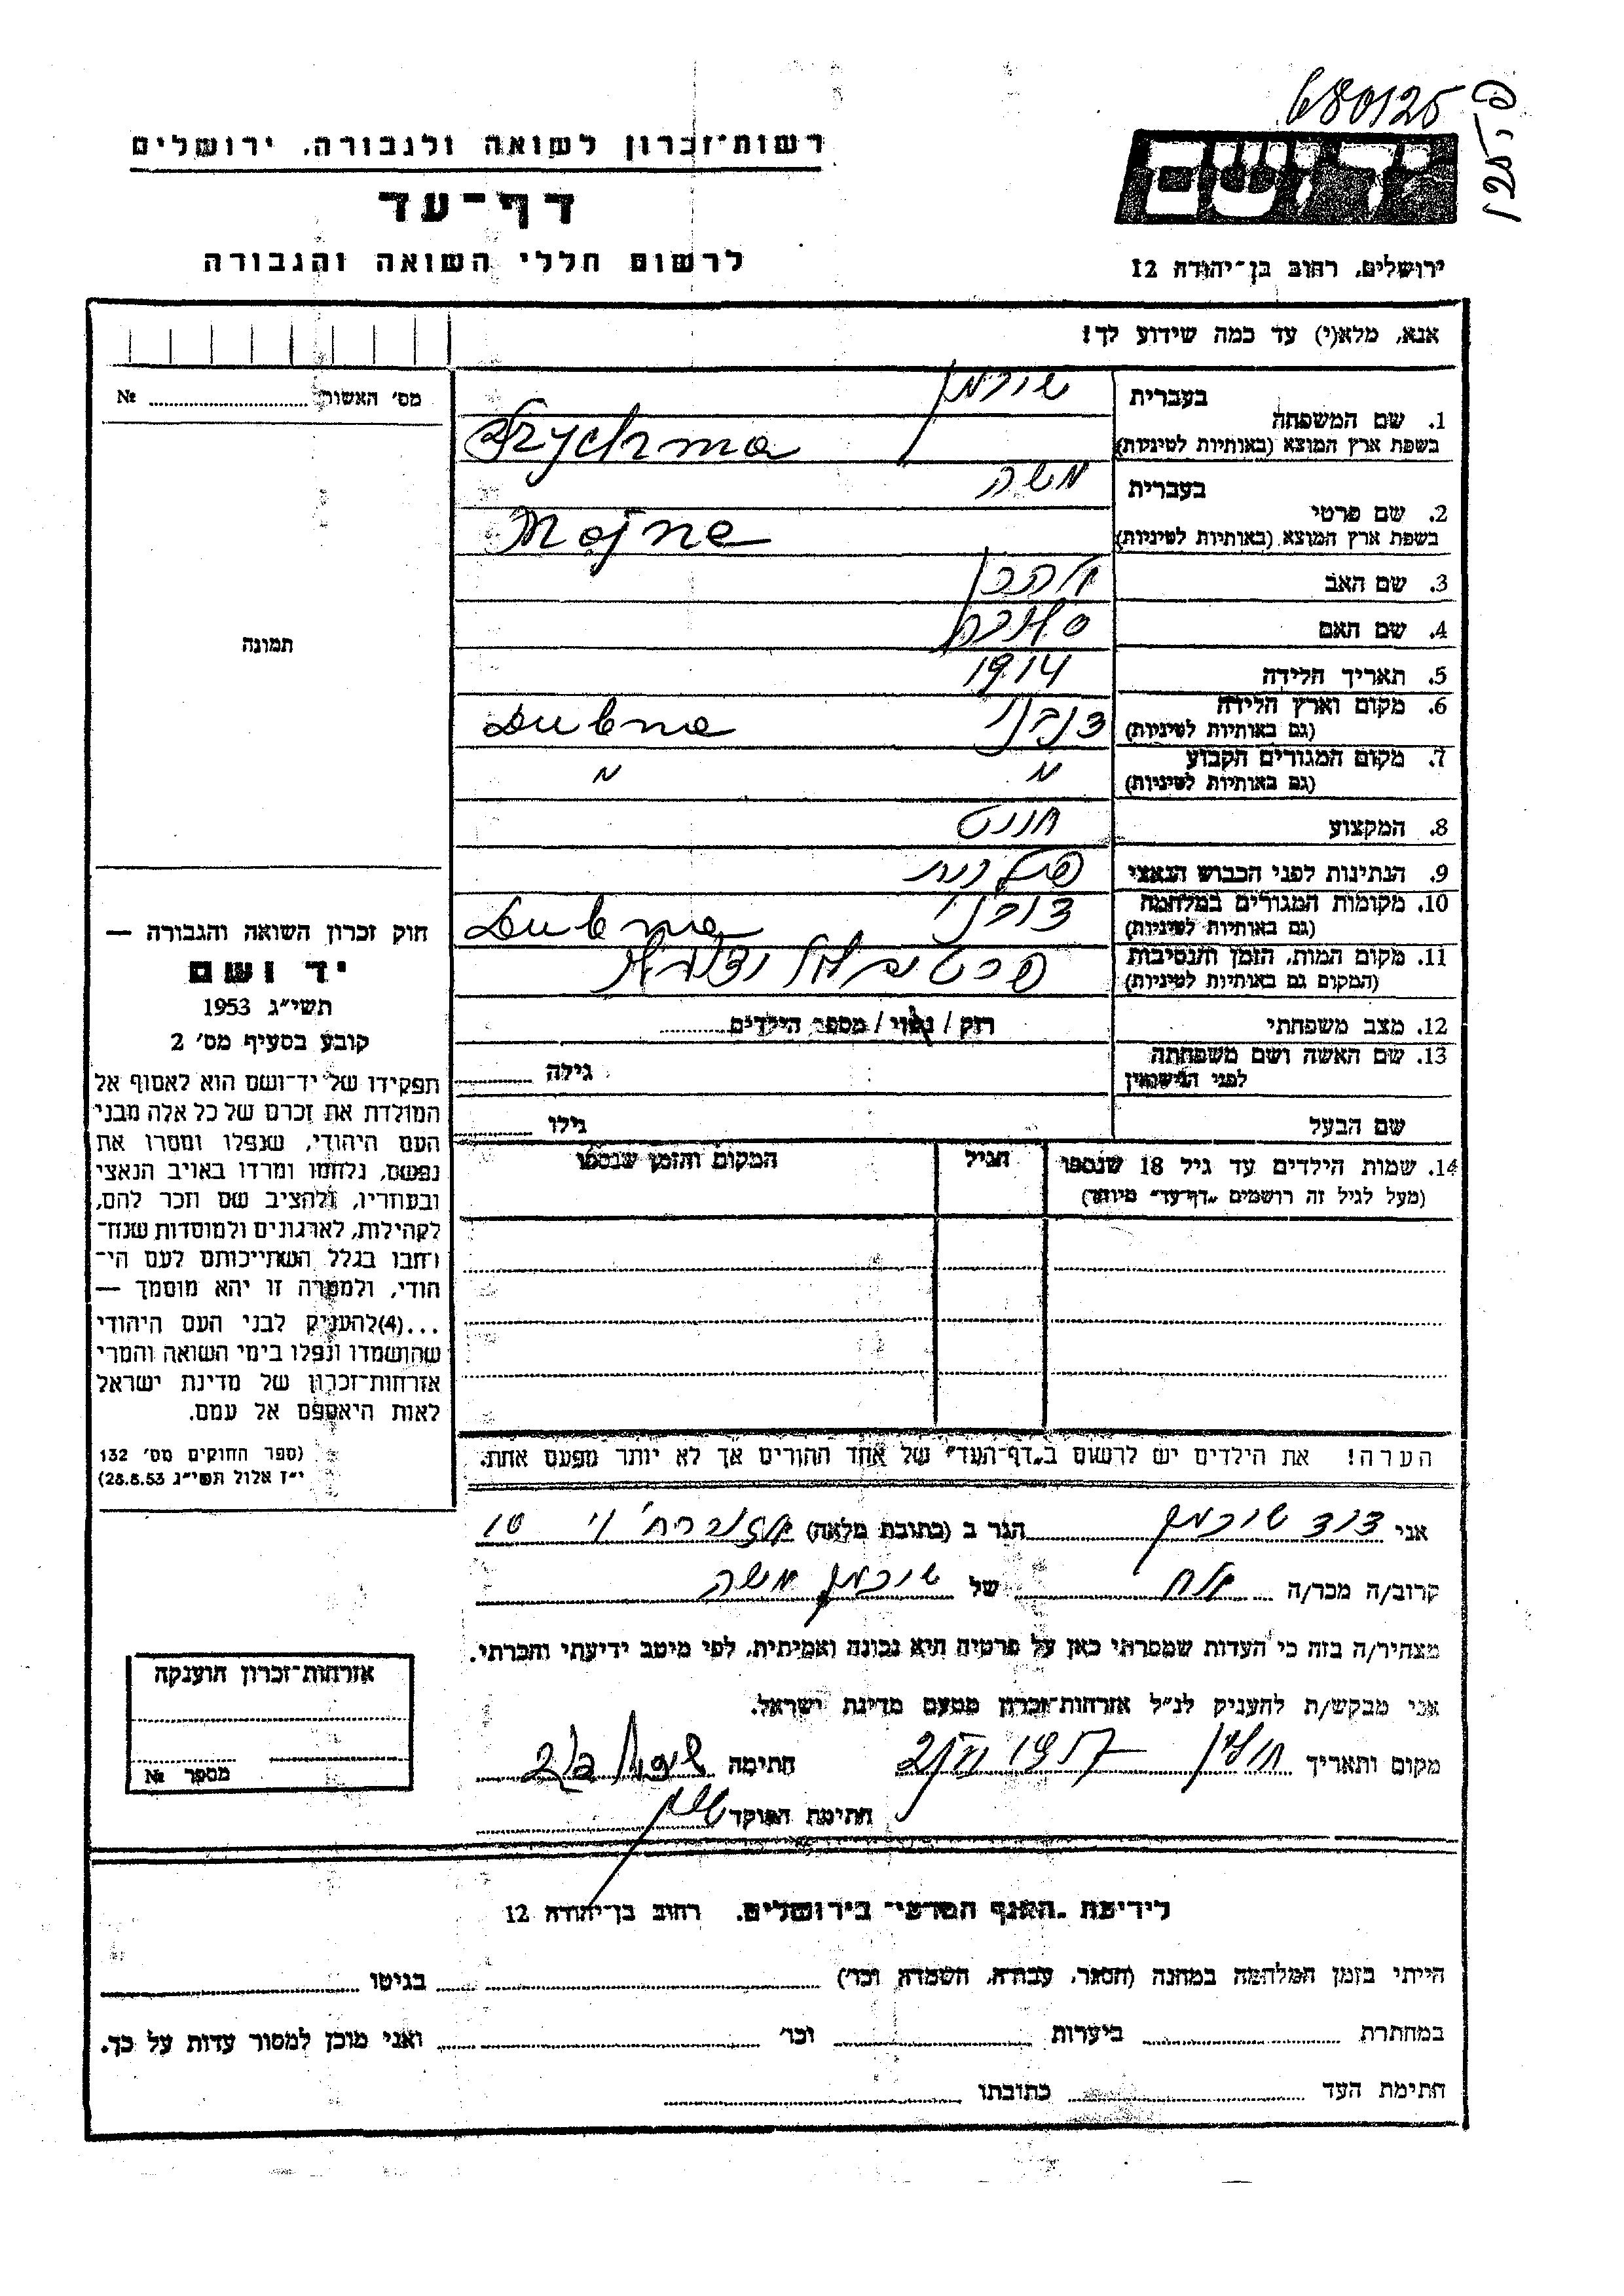 680125
רשות־זכרון לשואה ולגבורה, ירושלים
יד ושם
דף־עד
לרשום חללי השואה והגבורה
ירושלים, רחוב בן־יהודה 12
אנא, מלא(י) עד כמה שידוע לך!
מס׳ האשור № 
1. שם המשפחה
בעברית שוכמן
בשפת ארץ המוצא (באותיות לטיניות)
2. שם פרטי
בעברית משה
בשפת ארץ המוצא (באותיות לטיניות)
3. שם האב
4. שם האם
5. תאריך הלידה 1914
6. מקום וארץ הלידה
(גם באותיות לטיניות) דובנו Dubno
7. מקום המגורים הקבוע
(גם באותיות לטיניות) " "
8. המקצוע
9. הנתינות לפני הכבוש הנאצי
10. מקומות המגורים במלחמה
(גם באותיות לטיניות) דובנו Dubno
11. מקום המות, הזמן והנסיבות
(המקום גם באותיות לטיניות)
12. מצב משפחתי רוק / נשוי / מספר הילדים
13. שם האשה ושם משפחתה
לפני הנישואין גילה
שם הבעל גילו
14. שמות הילדים עד גיל 18 שנספו הגיל המקום והזמן שנספו
(מעל לגיל זה רושמים „דף־עד״ מיוחד)
הערה! את הילדים יש לרשום ב„דף־העד״ של אחד ההורים אך לא יותר מפעם אחת.
תמונה
חוק זכרון השואה והגבורה —
יד ושם
תשי״ג 1953
קובע בסעיף מס׳ 2
תפקידו של יד־ושם הוא לאסוף אל
המולדת את זכרם של כל אלה מבני
העם היהודי, שנפלו ומסרו את
נפשם, נלחמו ומרדו באויב הנאצי
ובעוזריו, ולהציב שם וזכר להם,
לקהילות, לארגונים ולמוסדות שנח־
רחבו בגלל השתייכותם לעם הי־
הודי, ולמטרה זו יהא מוסמך —
...(4) להעניק לבני העם היהודי
שהושמדו ונפלו בימי השואה והמרי
אזרחות־זכרון של מדינת ישראל
לאות היאספם אל עמם.
(ספר החוקים מס׳ 132
י״ז אלול תשי״ג 28.8.53)
אני דוד שוכמן הגר ב (כתובת מלאה)
קרוב/ה מכר/ה אח של שוכמן משה
מצהיר/ה בזה כי העדות שמסרתי כאן על פרטיה היא נכונה ואמיתית, לפי מיטב ידיעתי והכרתי.
אני מבקש/ת להעניק לנ״ל אזרחות־זכרון מטעם מדינת ישראל.
מקום ותאריך חולון 1957 חתימה
חתימת הפוקד
אזרחות־זכרון הוענקה
מספר №
לידיעת „האגף המדעי״ בירושלים, רחוב בן־יהודה 12
הייתי בזמן המלחמה במחנה (הסגר, עבודה, השמדה וכו׳) בגיטו
במחתרת ביערות וכו׳ ואני מוכן למסור עדות על כך.
חתימת העד כתובתו